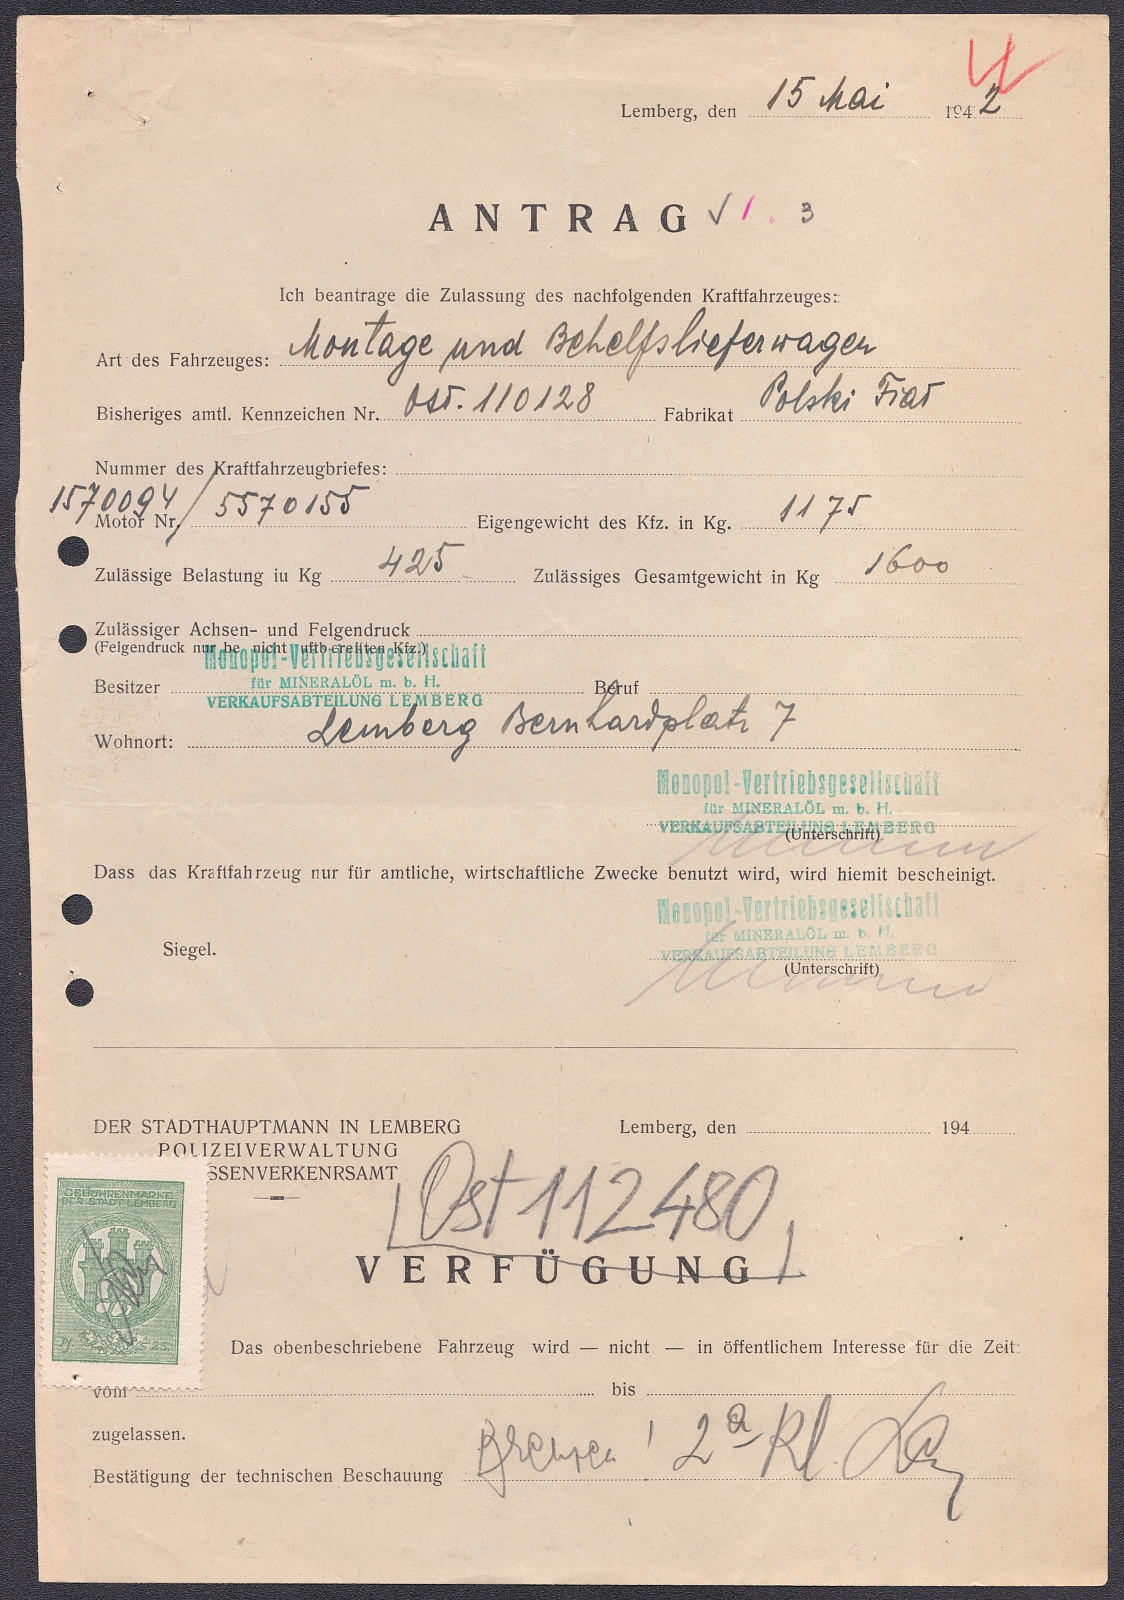 Lemberg, den 15 Mai 1942
ANTRAG √ 1. 3
Ich beantrage die Zulassung des nachfolgenden Kraftfahrzeuges:
Art des Fahrzeuges: Montage und Behelfslieferwagen
Bisheriges amtl. Kennzeichen Nr. Ost. 110128 Fabrikat Polski Fiat
Nummer des Kraftfahrzeugbriefes:
1570094 / 5570155
Motor Nr. Eigengewicht des Kfz. in Kg. 1175
Zulässige Belastung iu Kg 425 Zulässiges Gesamtgewicht in Kg 1600
Zulässiger Achsen- und Felgendruck
(Felgendruck nur be nicht luftbereiften Kfz.)
Monopol-Vertriebsgesellschaft
für MINERALÖL m. b. H.
Besitzer Beruf
VERKAUFSABTEILUNG LEMBERG
Wohnort: Lemberg Bernhardplatz 7
Monopol-Vertriebsgesellschaft
für MINERALÖL m. b. H.
VERKAUFSABTEILUNG LEMBERG
(Unterschrift)
Dass das Kraftfahrzeug nur für amtliche, wirtschaftliche Zwecke benutzt wird, wird hiemit bescheinigt.
Monopol-Vertriebsgesellschaft
für MINERALÖL m. b. H.
Siegel.
VERKAUFSABTEILUNG LEMBERG
(Unterschrift)
DER STADTHAUPTMANN IN LEMBERG Lemberg, den 194
POLIZEIVERWALTUNG
SSENVERKENRSAMT
GEBÜHRENMARKE
DER STADT LEMBERG
Ost 112480
VERFÜGUNG
Das obenbeschriebene Fahrzeug wird — nicht — in öffentlichem Interesse für die Zeit:
vom bis
zugelassen.
Bestätigung der technischen Beschauung 2a Kl.